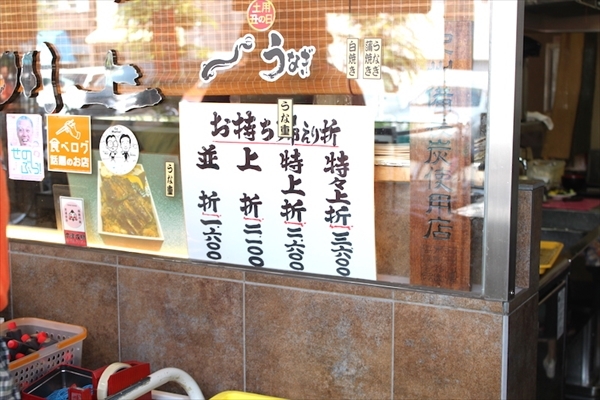 土用
丑の日
うなぎ
白焼き
うなぎ
蒲焼き
うな重
お持ち帰り折
特々上折 三六〇〇
特上折 二六〇〇
上折 二一〇〇
並折 一六〇〇
うな重
食べログ
話題のお店
炭使用店